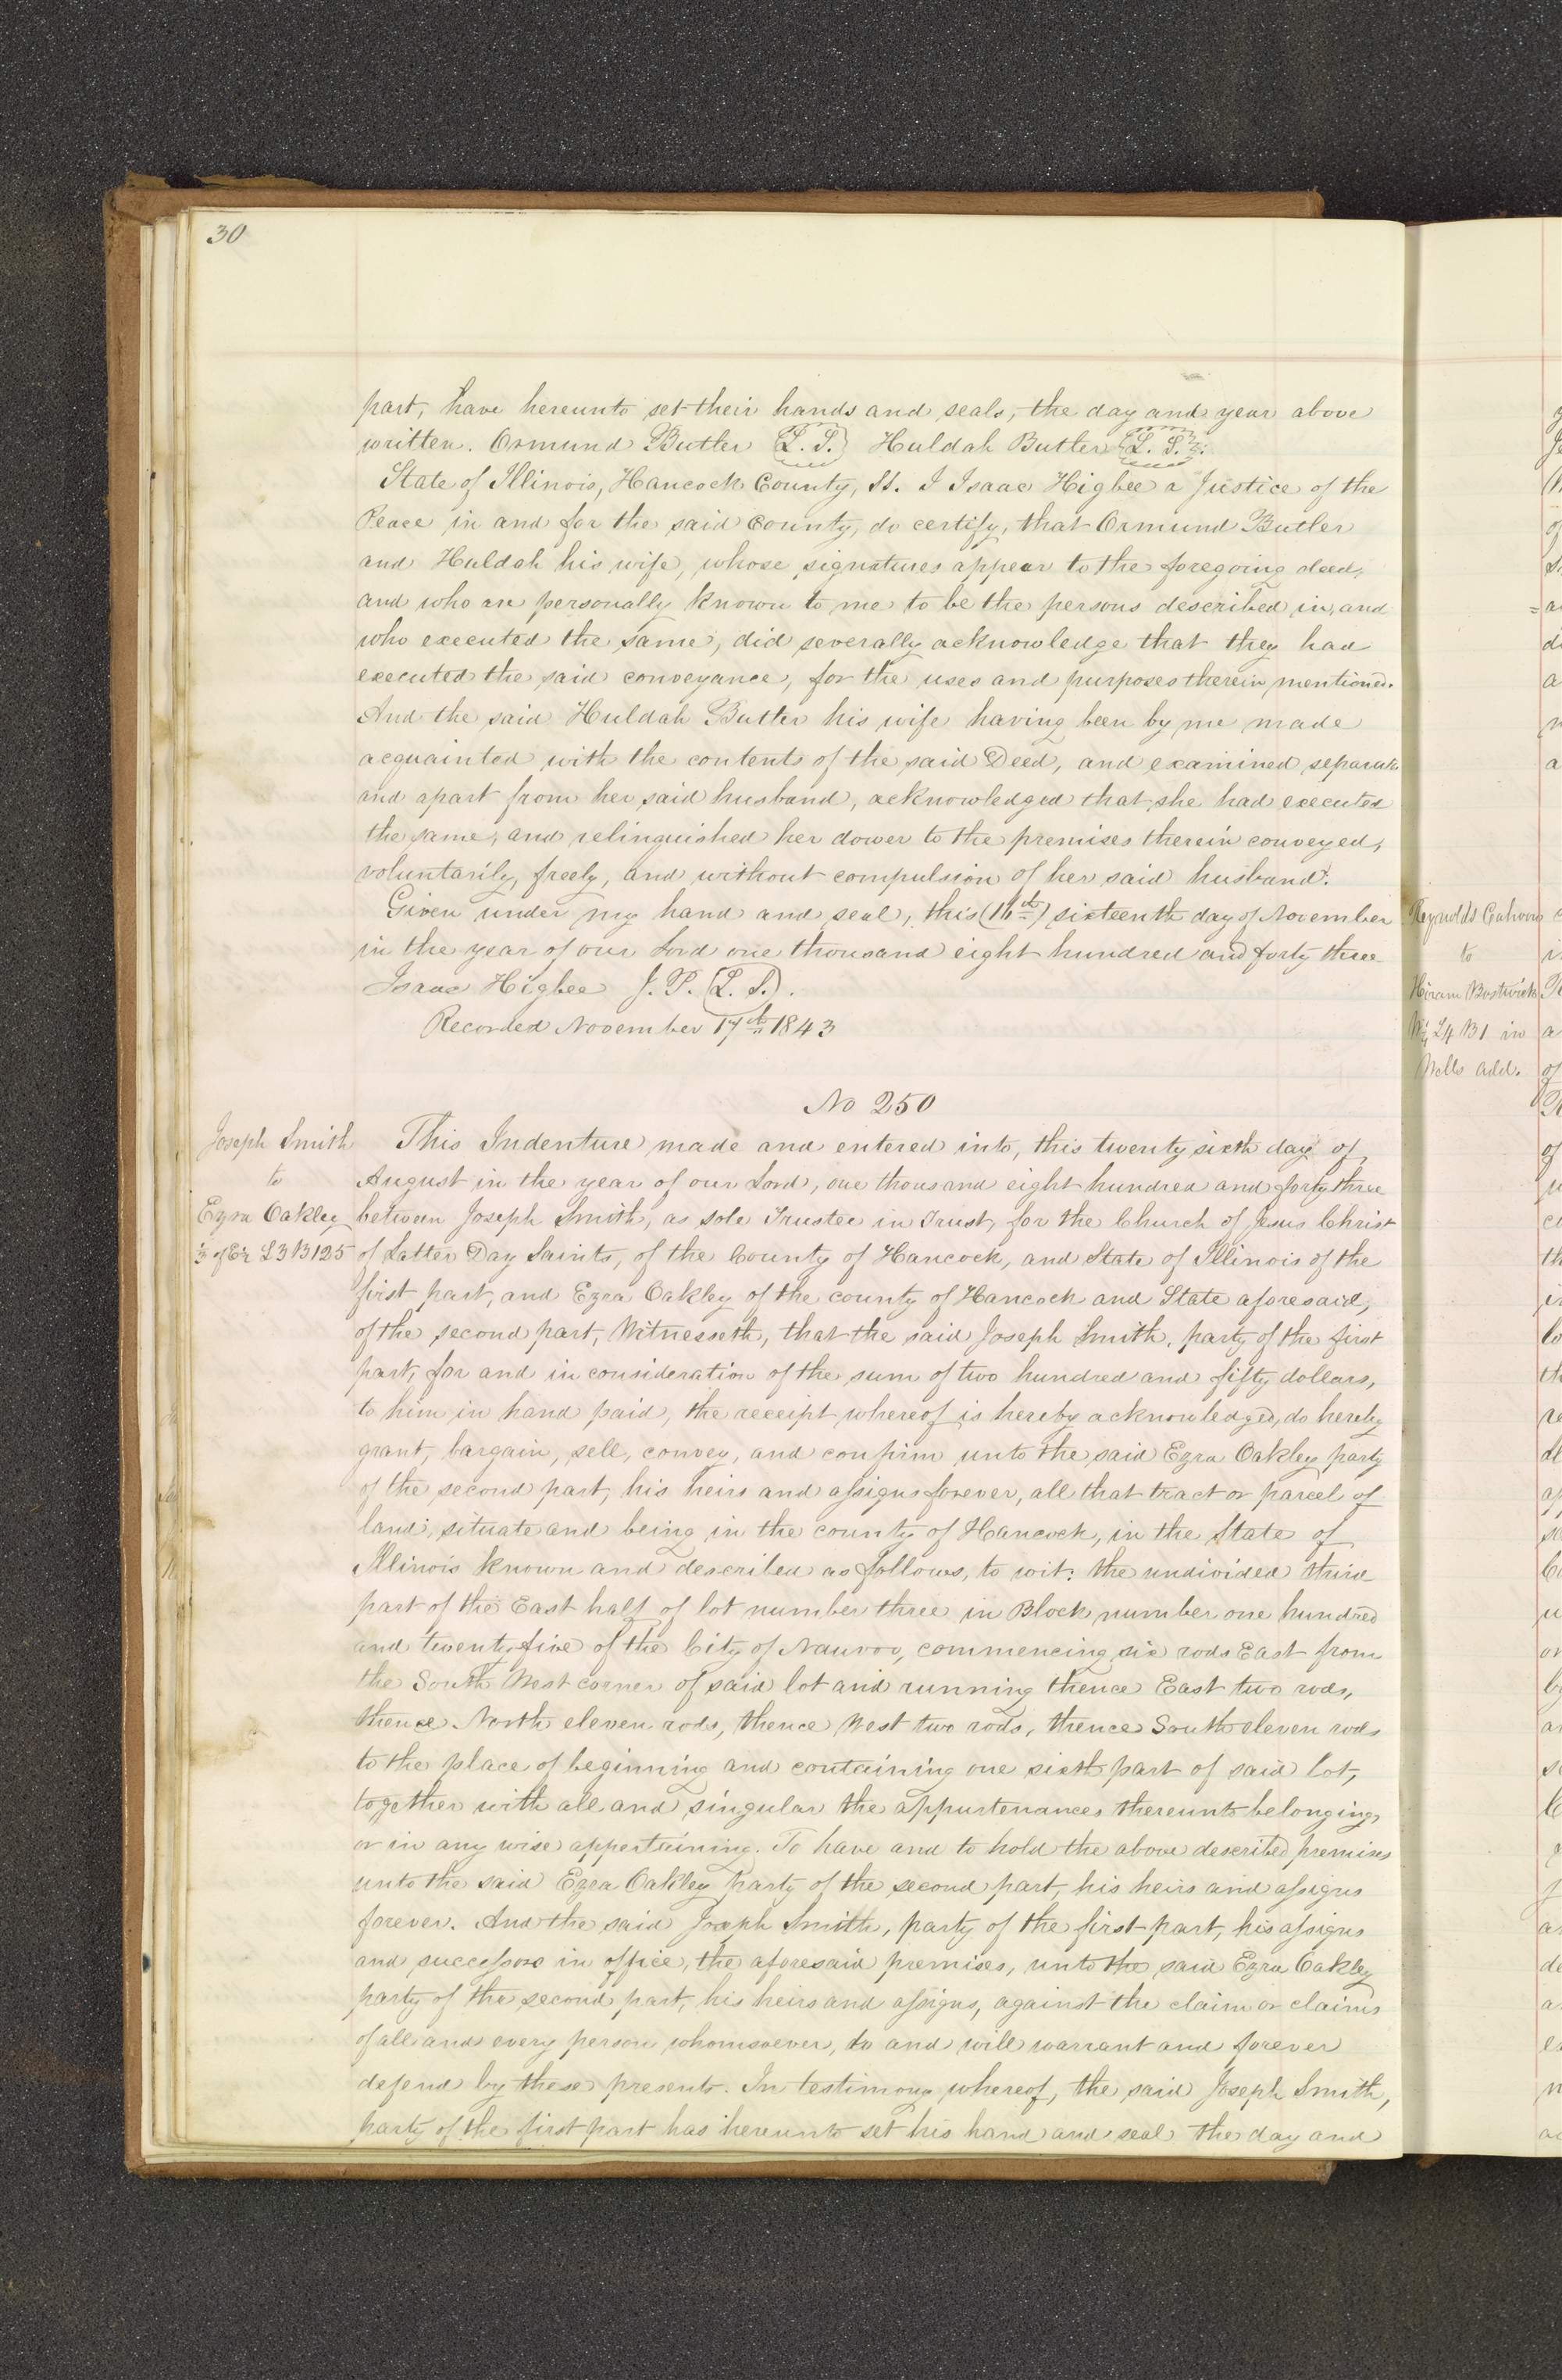 30
part, have hereunto set their hands and seals, the day and year above
written. Ormund Butler (L. S.) Huldah Butler (L. S.)
State of Illinois, Hancock County, Ss. I Isaac Higbee a Justice of the
Peace in and for the said County, do certify, that Ormund Butler
and Huldah his wife, whose signatures appear to the foregoing deed,
and who are personally known to me to be the persons described in, and
who executed the same, did severally acknowledge that they had
executed the said conveyance, for the uses and purposes therein mentioned.
And the said Huldah Butler his wife having been by me made
acquainted with the contents of the said Deed, and examined separate
and apart from her said husband, acknowledged that she had executed
the same, and relinquished her dower to the premises therein conveyed,
voluntarily, freely, and without compulsion of her said husband.
Given under my hand and seal, this (16th) sixteenth day of November
in the year of our Lord one thousand eight hundred and forty three
Isaac Higbee J. P. (L. S.).
Recorded November 17th 1843
No 250
Joseph Smith
to
Ezra Oakley
⅓ of E½ L3 B125
This Indenture made and entered into, this twenty sixth day of
August in the year of our Lord, one thousand eight hundred and forty three
between Joseph Smith, as sole Trustee in Trust, for the Church of Jesus Christ
of Latter Day Saints, of the County of Hancock, and State of Illinois of the
first part, and Ezra Oakley of the county of Hancock and State aforesaid,
of the second part, Witnesseth, that the said Joseph Smith, party of the first
part, for and in consideration of the sum of two hundred and fifty dollars,
to him in hand paid, the receipt whereof is hereby acknowledged, do hereby
grant, bargain, sell, convey, and confirm unto the said Ezra Oakley party
of the second part, his heirs and assigns forever, all that tract or parcel of
land, situate and being in the county of Hancock, in the State of
Illinois known and described as follows, to wit: the undivided third
part of the East half of lot number three in Block number one hundred
and twenty five of the City of Nauvoo, commencing six rods East from
the South West corner of said lot and running thence East two rods,
thence North eleven rods, thence West two rods, thence South eleven rods
to the place of beginning and containing one sixth part of said lot,
together with all and singular the appurtenances thereunto belonging,
or in any wise appertaining. To have and to hold the above described premises
unto the said Ezra Oakley party of the second part, his heirs and assigns
forever. And the said Joseph Smith, party of the first part, his assigns
and successors in office, the aforesaid premises, unto the said Ezra Oakley
party of the second part, his heirs and assigns, against the claim or claims
of all and every person whomsoever, do and will warrant and forever
defend by these presents. In testimony whereof, the said Joseph Smith,
party of the first part has hereunto set his hand and seal the day and
Reynolds Cahoon
to
Hiram Bostwick
L4 B1 in
Wells add.